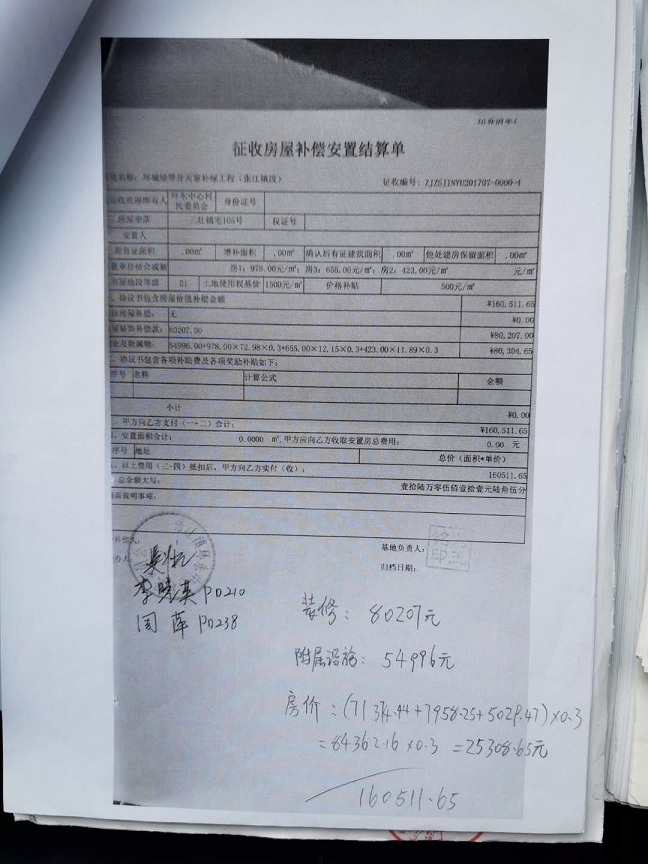 征收房屋补偿安置结算单
征收编号: ZJZSJINYU201707-0000-4
环城绿带开天窗补绿工程(张江镇段)
环东中心村民委员会 身份证号
三灶镇宅105号 权证号
.00㎡ 增补面积 .00㎡ 确认后有证建筑面积 .00㎡ 他处建房保留面积 .00㎡
房1: 978.00元/㎡; 房3: 655.00元/㎡; 房2: 423.00元/㎡ 元/㎡
土地使用权基价 1500元/㎡ 价格补贴 500元/㎡
协议书包含房屋价值补偿金额 ¥160,511.65
无 ¥0.00
80207.00 ¥80,207.00
54996.00+978.00×72.98×0.3+655.00×12.15×0.3+423.00×11.89×0.3 ¥80,304.65
协议书包含各项补助费及各项奖励补贴如下:
序号 名称 计算公式 金额
小计 ¥0.00
甲方向乙方支付(一+二)合计: ¥160,511.65
安置面积合计: 0.0000 ㎡,甲方应向乙方收取安置房总费用: 0.00 元
序号 地址 总价(面积*单价)
以上费用(三-四)抵扣后,甲方向乙方实付(收): 160511.65
总金额大写: 壹拾陆万零伍佰壹拾壹元陆角伍分
基地负责人:
归档日期:
李晓英 P0210
周萍 P0238
装修: 80207元
附属设施: 54996元
房价: (71374.44+7958.25+5029.47)×0.3
=84362.16×0.3 =25308.65元
160511.65